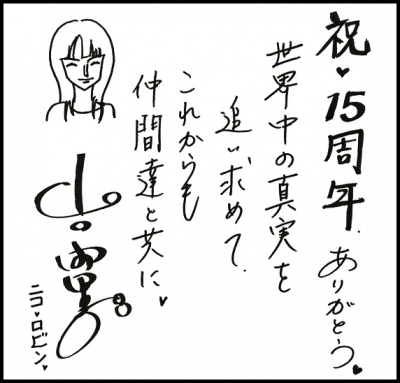 祝♥15周年 ありがとう♥
世界中の真実を
追い求めて
これからも
仲間達と共に♥
ニコ♥ロビン♥